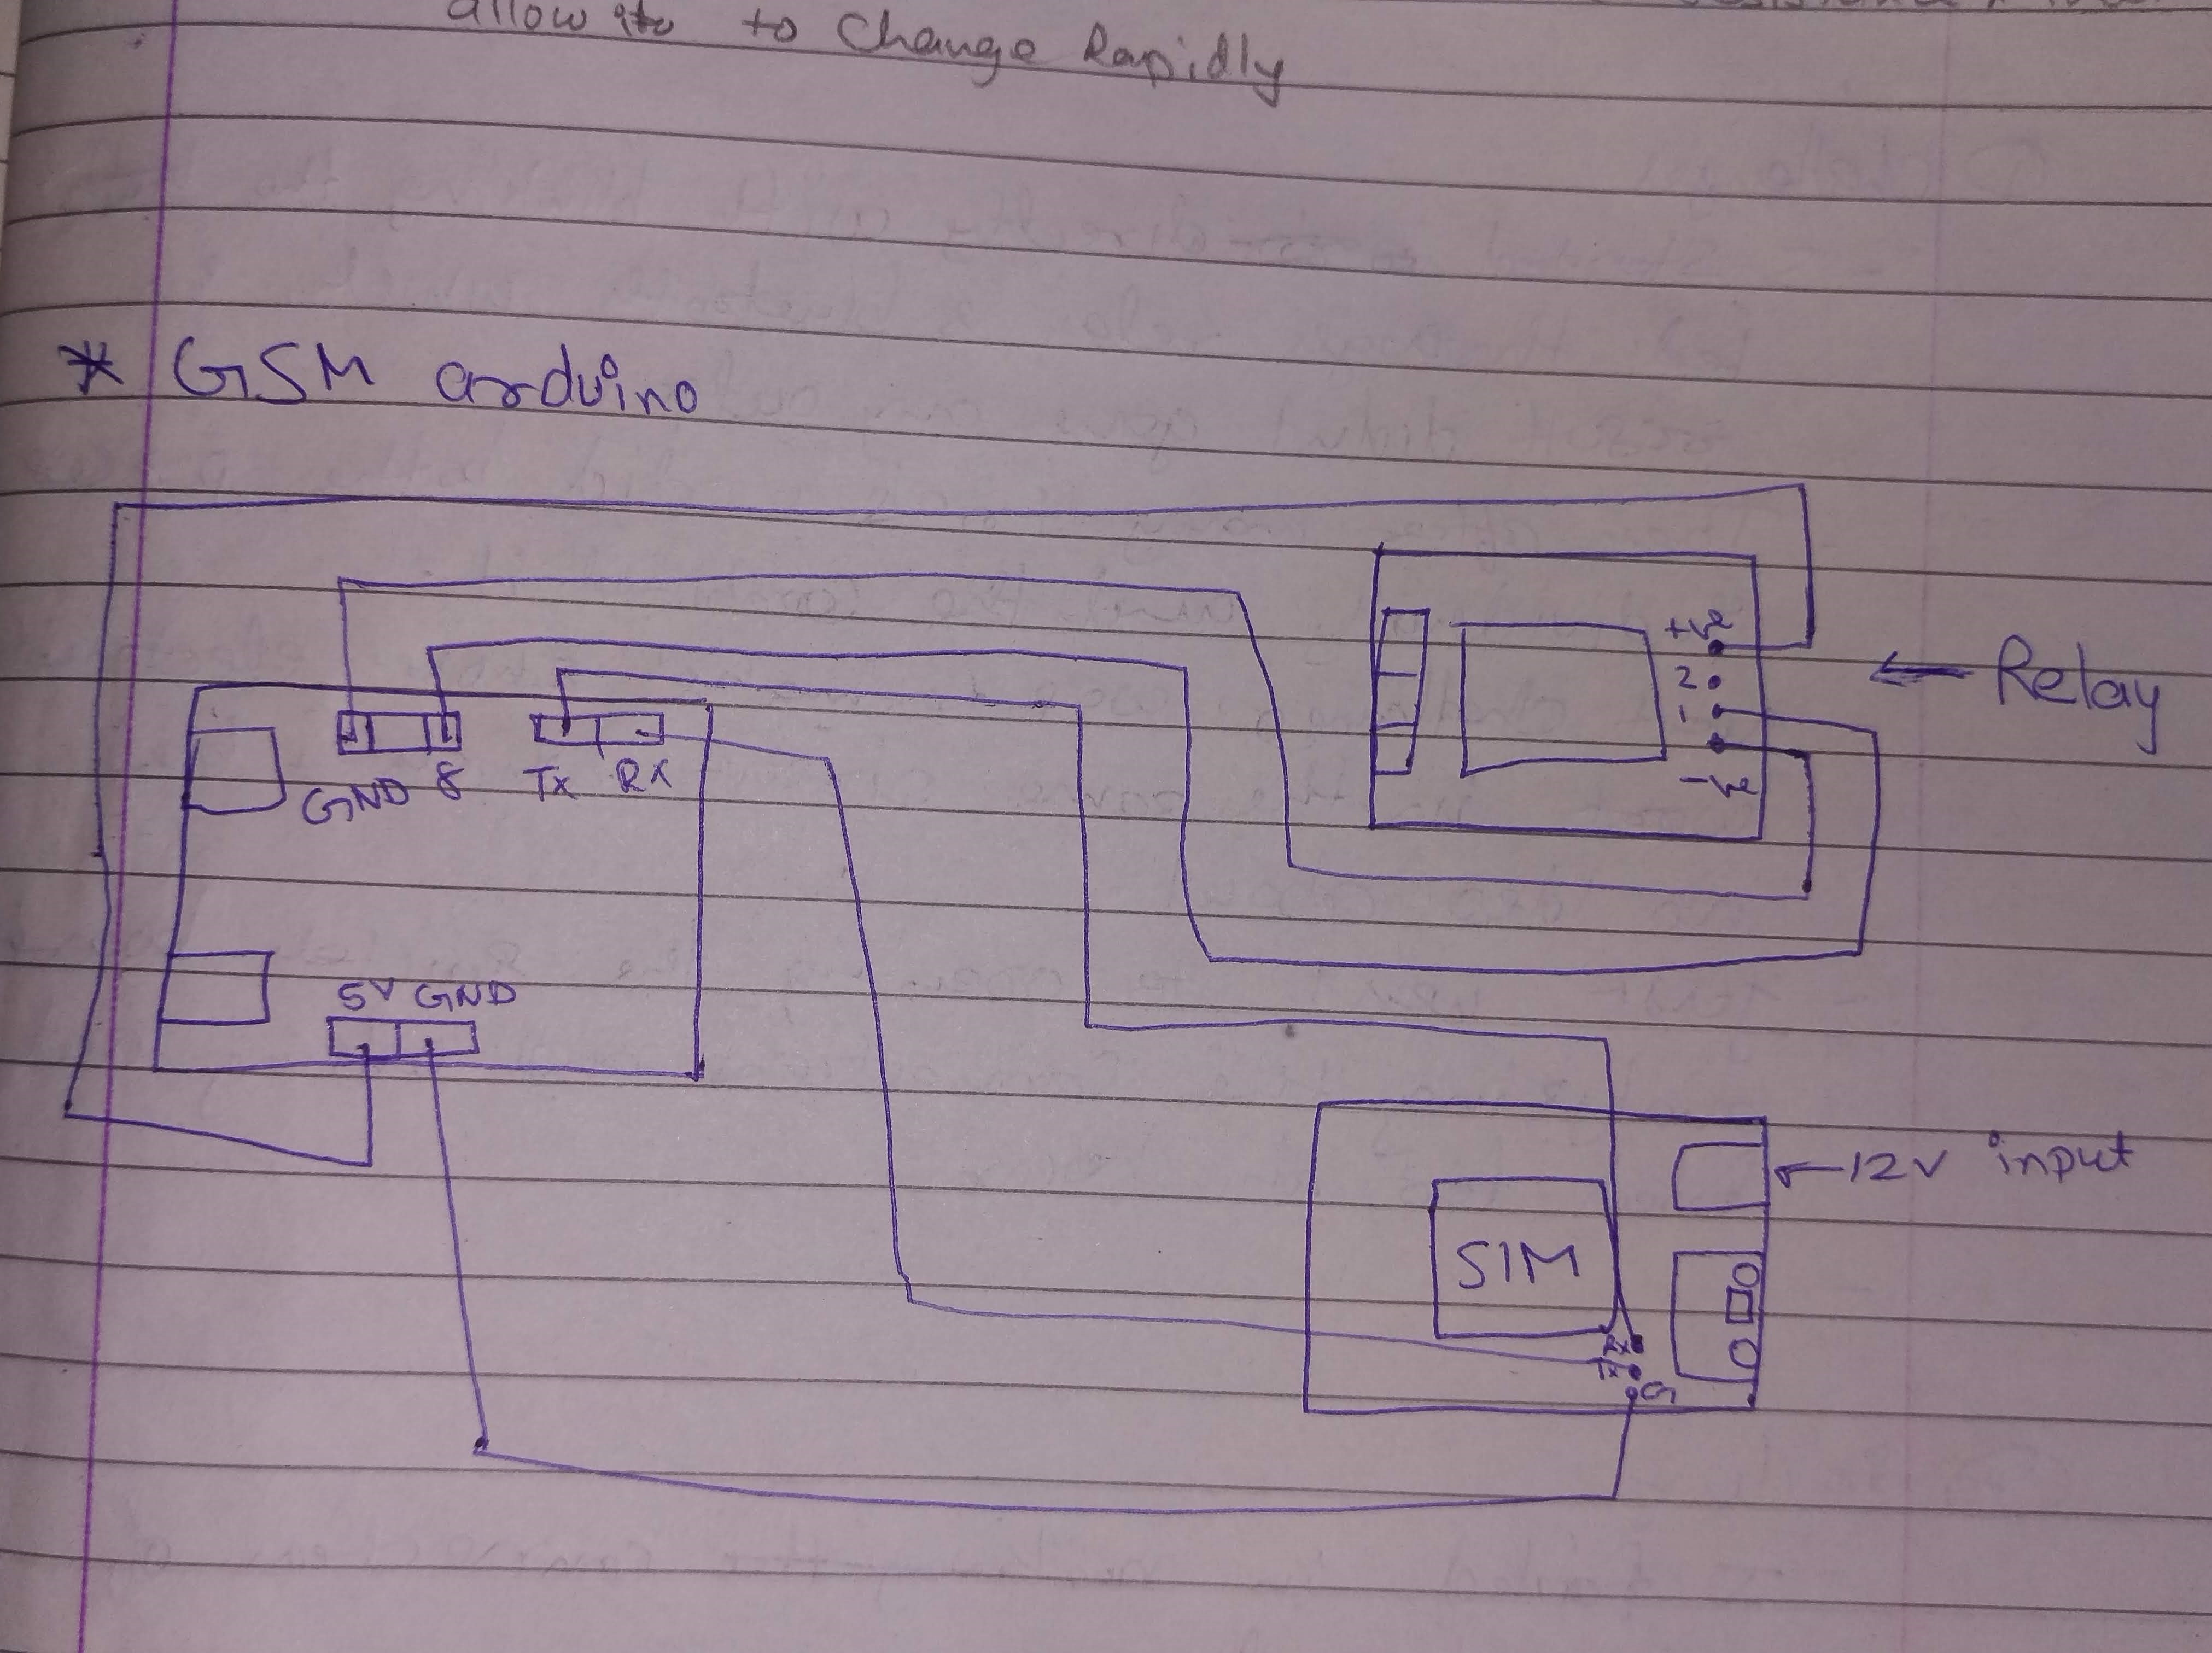 allow ito to Change Rapidly
* GSM arduino
+ve
2
1
-ve
← Relay
GND 8 Tx RX
5V GND
← 12V input
SIM
Rx
Tx
G